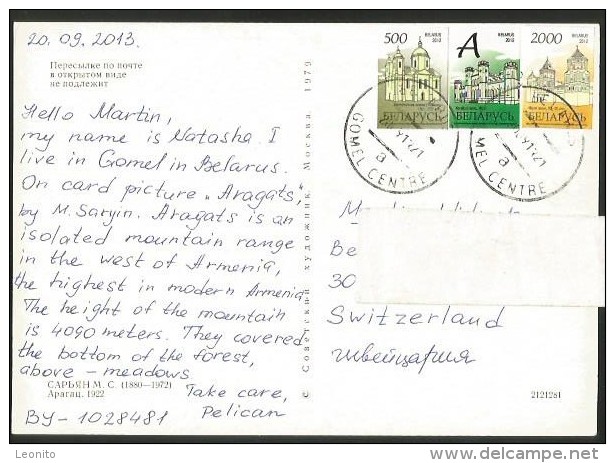 20.09.2013.
Пересылке по почте
в открытом виде
не подлежит
Hello Martin,
my name is Natasha. I
live in Gomel in Belarus.
On card picture „Aragats",
by M. Saryin. Aragats is an
isolated mountain range
in the west of Armenia,
the highest in modern Armenia.
The height of the mountain
is 4090 meters. They covered
the bottom of the forest,
above - meadows
САРЬЯН М. С. (1880—1972)
Арагац. 1922
Take care,
Pelican
BY-1028481
© Советский художник. Москва. 1979
500
BELARUS
2012
БЕЛАРУСЬ
A
BELARUS
2012
БЕЛАРУСЬ
2000
BELARUS
2012
БЕЛАРУСЬ
GOMEL CENTRE
MEL CENTRE
Be
30
Switzerland
Швейцария
2121281
Leonito